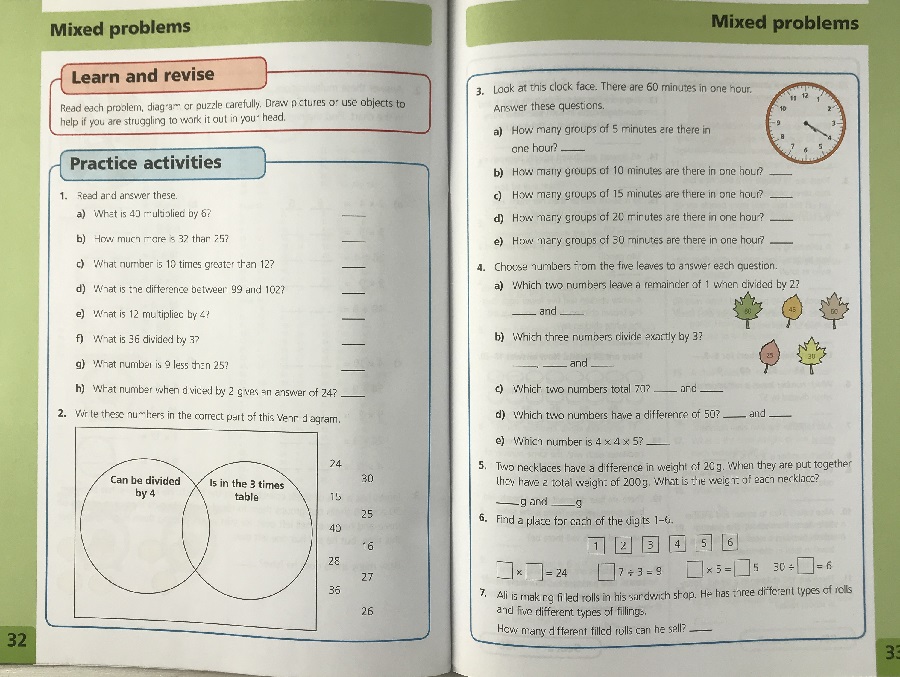 Mixed problems
Learn and revise
Read each problem, diagram or puzzle carefully. Draw pictures or use objects to
help if you are struggling to work it out in your head.
Practice activities
1. Read and answer these.
a) What is 40 multiplied by 6? ____
b) How much more is 32 than 25? ____
c) What number is 10 times greater than 12? ____
d) What is the difference between 99 and 102? ____
e) What is 12 multiplied by 4? ____
f) What is 36 divided by 3? ____
g) What number is 9 less than 25? ____
h) What number when divided by 2 gives an answer of 24? ____
2. Write these numbers in the correct part of this Venn diagram.
Can be divided
by 4
Is in the 3 times
table
24
30
15
25
40
16
28
27
36
26
32
Mixed problems
3. Look at this clock face. There are 60 minutes in one hour.
Answer these questions.
a) How many groups of 5 minutes are there in
one hour? ____
12 1 2 3 4 5 6 7 8 9 10 11
b) How many groups of 10 minutes are there in one hour? ____
c) How many groups of 15 minutes are there in one hour? ____
d) How many groups of 20 minutes are there in one hour? ____
e) How many groups of 30 minutes are there in one hour? ____
4. Choose numbers from the five leaves to answer each question.
a) Which two numbers leave a remainder of 1 when divided by 2?
____ and ____
80 45 60
b) Which three numbers divide exactly by 3?
25 30
____ ____ and ____
c) Which two numbers total 70? ____ and ____
d) Which two numbers have a difference of 50? ____ and ____
e) Which number is 4 × 4 × 5? ____
5. Two necklaces have a difference in weight of 20g. When they are put together
they have a total weight of 200g. What is the weight of each necklace?
____g and ____g
6. Find a place for each of the digits 1–6.
1 2 3 4 5 6
□ × □ = 24 □ 7 ÷ 3 = 9 □ × 5 = □ 5 30 ÷ □ = 6
7. Ali is making filled rolls in his sandwich shop. He has three different types of rolls
and five different types of fillings.
How many different filled rolls can he sell? ____